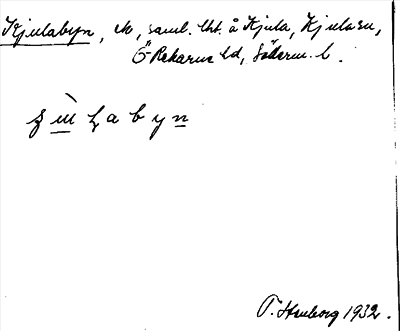 Kjulabyn, ek, saml. tht. å Kjula, Kjula sn,
Ö Rekarne hd, Söderm. l.
labyn
O. Stenborg 1932.